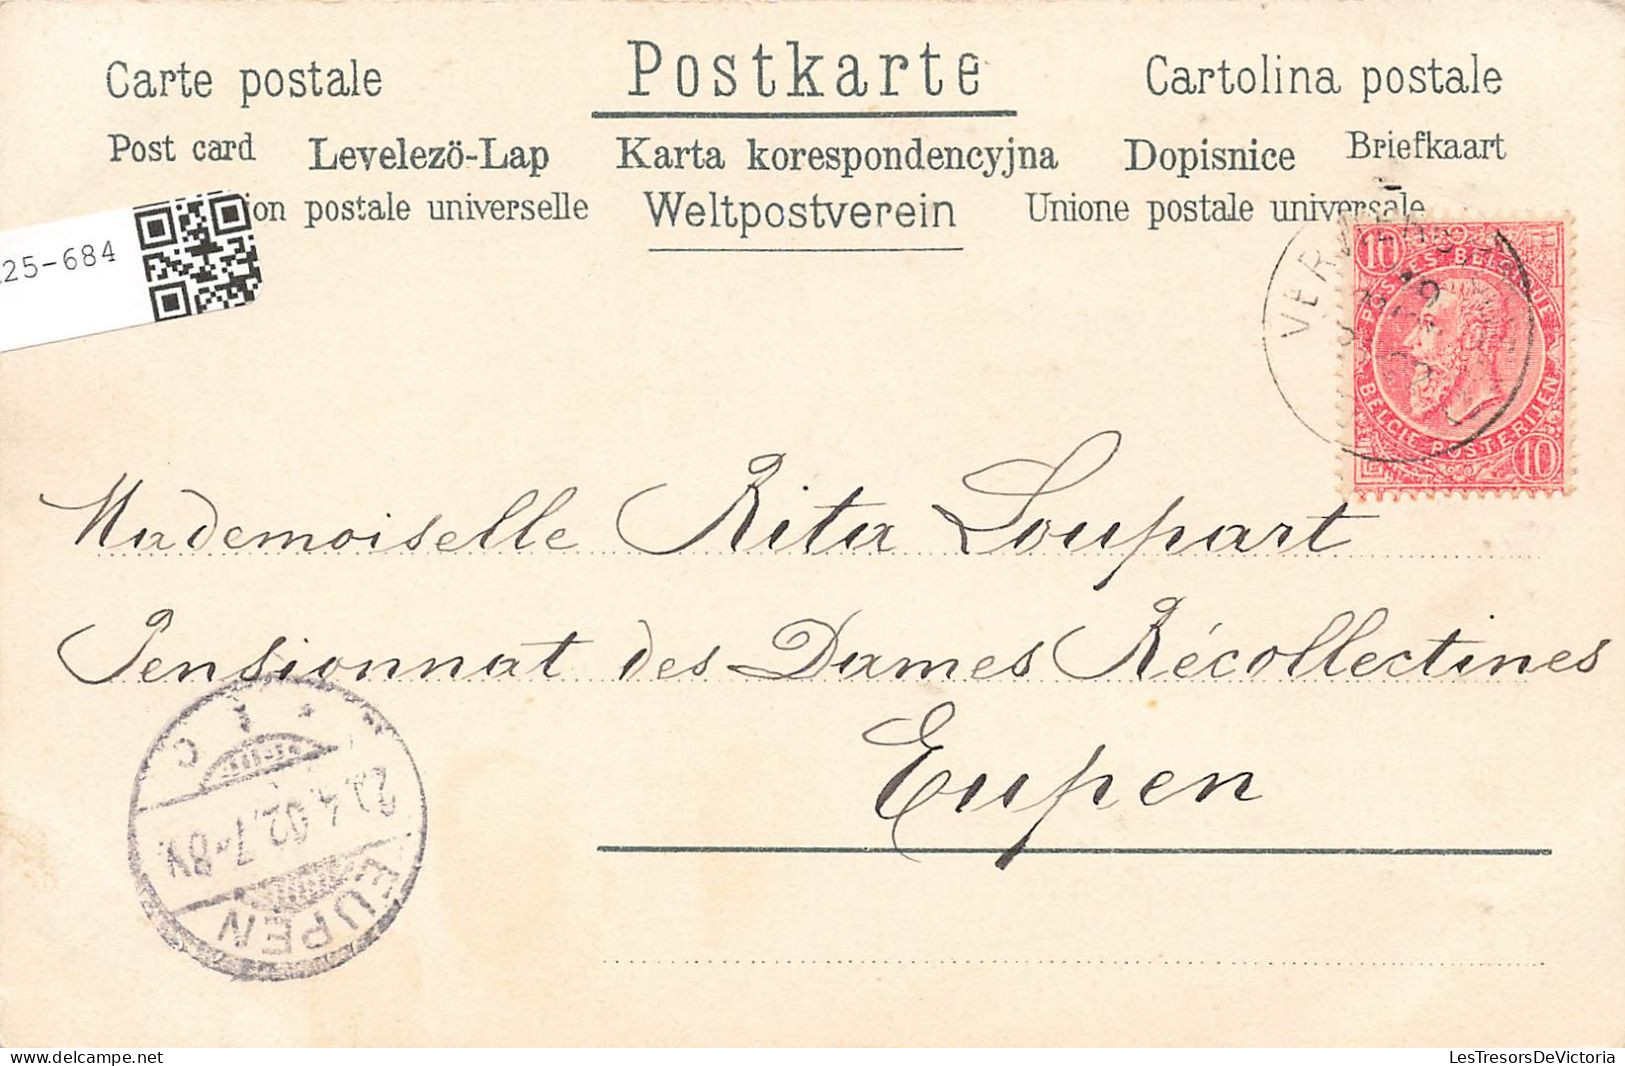 Carte postale Postkarte Cartolina postale
Post card Levelező-Lap Karta korespondencyjna Dopisnice Briefkaart
ion postale universelle Weltpostverein Unione postale universale
25-684
10 10
POSTES BELGIQUE
BELGIË POSTERIJEN
10
Mademoiselle Rita Loupart
Pensionnat des Dames Récollectines
Eupen
EUPEN
4.02.7-8V.
* 1 c
LesTresorsDeVictoria